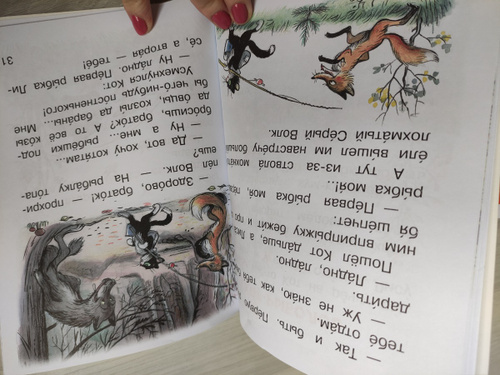 — Так и быть. Пе́рвую
тебе́ отда́м.
— Уж не зна́ю, как тебя
дари́ть.
— Ла́дно, ла́дно.
Пошёл Кот да́льше, а Лиса
ним вприпры́жку бежи́т и
бя ше́пчет:
— Пе́рвая ры́бка моя́,
ры́бка моя́...
А тут из-за ствола́ мохна
е́ли вы́шел им навстре́чу больш
лохма́тый Се́рый Волк.
— Здоро́во, братк! — прохри-
пе́л Волк. — На рыба́лку то́па-
ешь?
— Да вот, хочу́ котя́там...
— Ну а мне... рыбёшки под-
бро́сишь, братк? А то всё ко́зы
да о́вцы, козлы́ да бара́ны. Мне
бы чего́-нибудь по́стненького!
Усмехну́лся Кот:
— Ну ла́дно. Пе́рвая ры́бка Ли-
се́, а втора́я — тебе́!
31